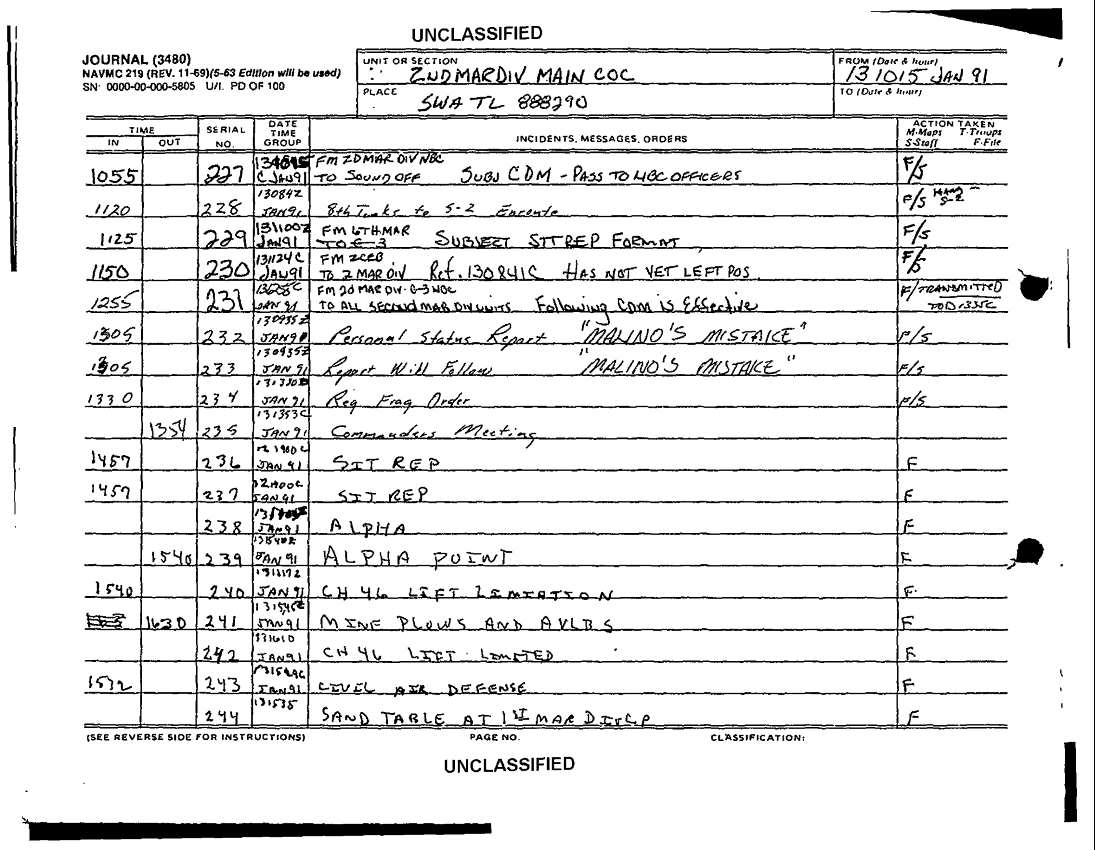 UNCLASSIFIED
JOURNAL (3480)
NAVMC 219 (REV. 11-69)(5-63 Edition will be used)
SN· 0000-00-000-5805 U/I. PD OF 100
UNIT OR SECTION
2ND MAR DIV MAIN COC
PLACE
SWA TL 888290
FROM (Date & hour)
131015 JAN 91
TO (Date & hour)
TIME
IN OUT
SERIAL NO.
DATE TIME GROUP
INCIDENTS, MESSAGES, ORDERS
ACTION TAKEN
M-Maps T-Troops
S-Staff F-File
FM 2D MAR DIV NBC
1055 227 C JAN 91 TO SOUND OFF SUBJ CDM - PASS TO NBC OFFICERS F/S
130842
1120 228 JAN 91 8th Tanks to S-2 Enroute F/S S-2
131100Z FM 6TH MAR
1125 229 JAN 91 TO G-3 SUBJECT SITREP FORMAT F/S
131124C FM 2CEB
1150 230 JAN 91 TO 2 MAR DIV Ref. 130841C HAS NOT YET LEFT POS. F/S
FM 2D MAR DIV G-3 NBC F/TRANSMITTED
1255 231 JAN 91 TO ALL SECOND MAR DIV UNITS Following CDM is Effective TOD 1335C
130935Z
1305 232 JAN 91 Personal Status Report "MALINO'S MISTAKE" F/S
130935Z
1305 233 JAN 91 Report Will Follow "MALINO'S MISTAKE" F/S
1330 234 JAN 91 Reg Frag Order F/S
131353C
1354 235 JAN 91 Commanders Meeting
1457 236 JAN 91 SIT REP F
1457 237 JAN 91 SIT REP F
238 JAN 91 ALPHA F
1540 239 JAN 91 ALPHA POINT F
1540 240 JAN 91 CH 46 LIFT LIMITATION F
1630 241 JAN 91 MINE PLOWS AND AVLBS F
131610
242 JAN 91 CH 46 LIFT LIMITED F
1532 243 JAN 91 CIVIL AIR DEFENSE F
131535
244 SAND TABLE AT 1ST MAR DIV CP F
(SEE REVERSE SIDE FOR INSTRUCTIONS) PAGE NO. CLASSIFICATION:
UNCLASSIFIED